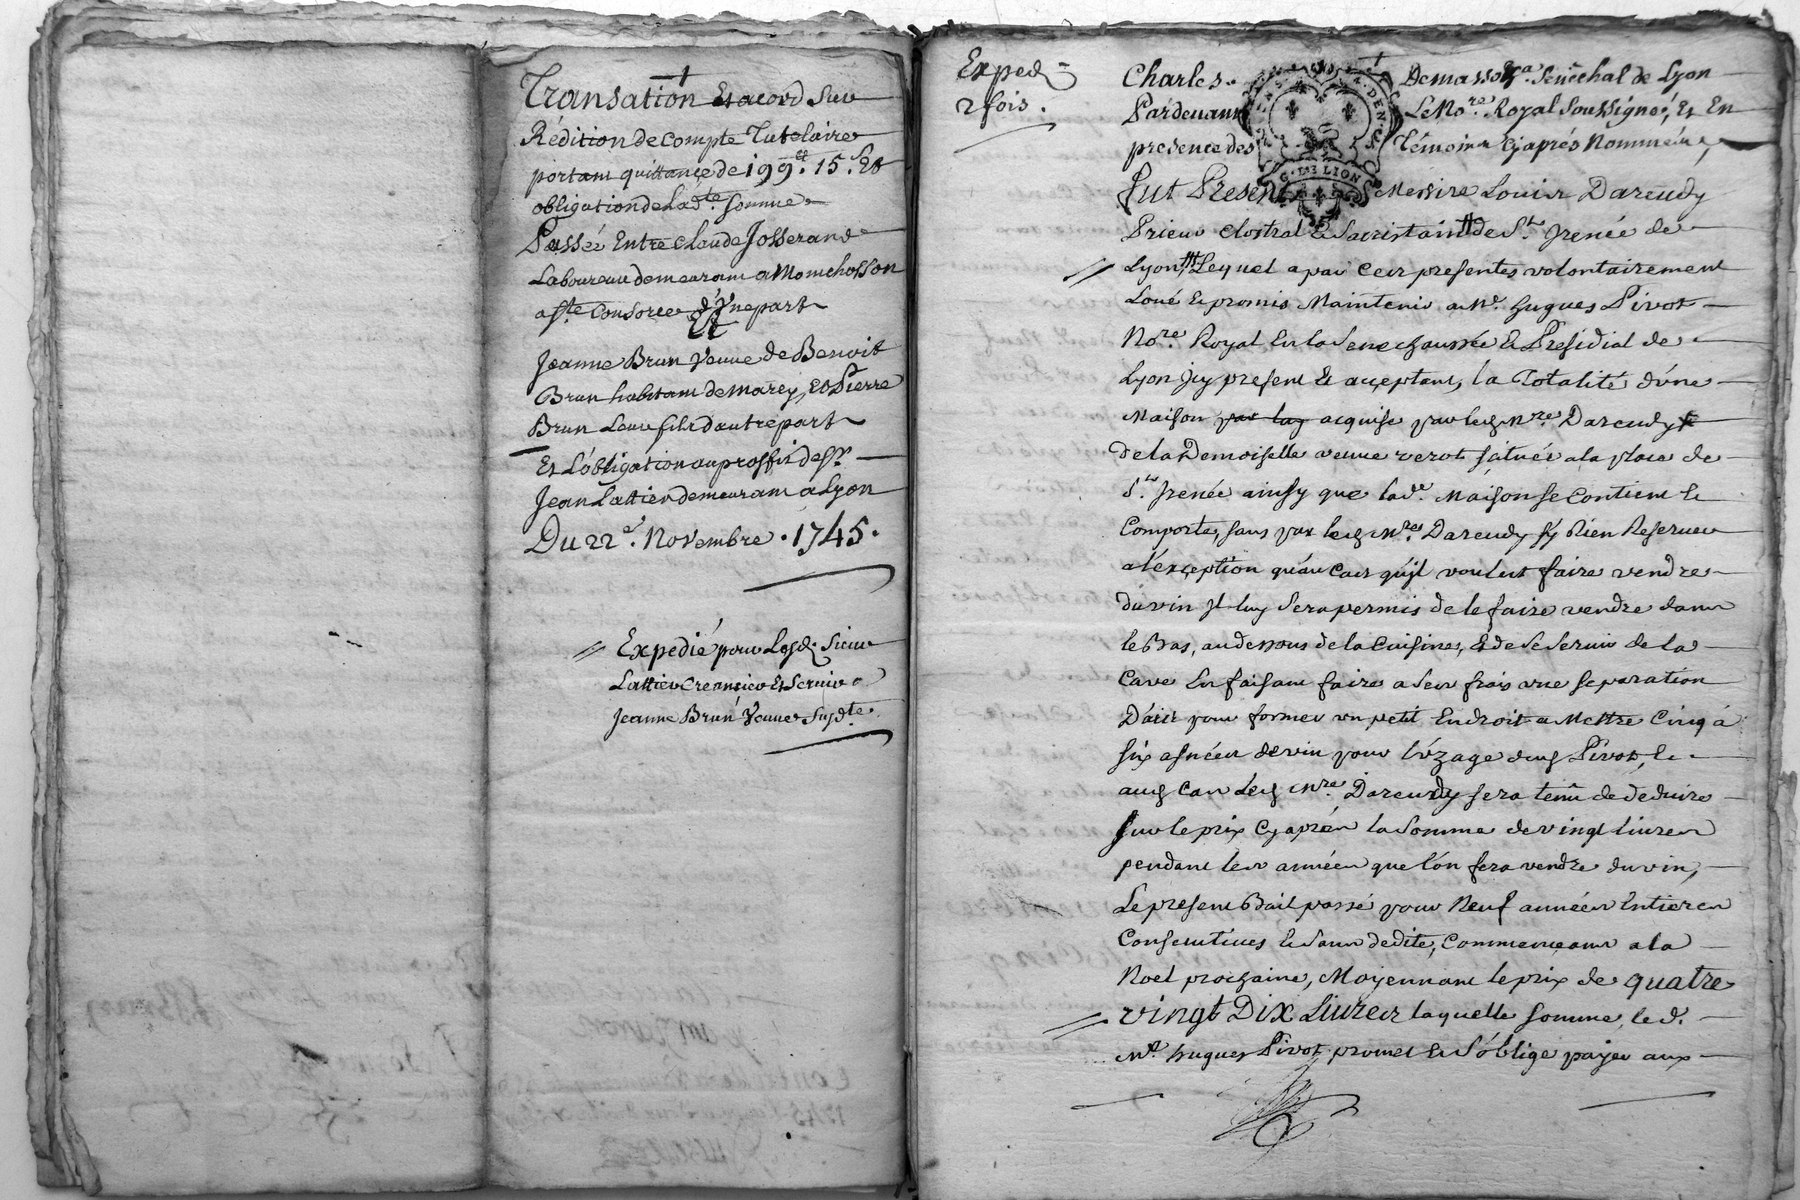 Transation Et acord Sur
Rédition de compte Tutelaire
portant quittance de 199.tt 15.s Et
obligation de Lad.te somme
Passée Entre Claude Josserand
Laboureur demeurant a Monchosson
a s.te Consorce d'Une part
Et
Jeanne Brun Veuve de Benoit
Brun habitant de marcy, Et Pierre
Brun Leur fils d'autre part
Et L'obligation au proffit de Sr.
Jean Lattier demeurant a Lyon
Du 22.e Novembre . 1745 .
Expedié pour Led. Sieur
Lattier Creancier Et Servir a
Jeanne Brun Veuve Susd.te
Exped.
2 fois .
Charles Demasso Senechal de Lyon
Pardevant Le No.re Royal Soussigné, Et En
presence des Témoins Cy aprés Nommés,
G. LION
Fut Present Messire Louis Dareudy
Prieur Clostral & Sacristain de St. Irenée de
Lyon Lequel a par Ces presentes volontairement
Loué & promis Maintenir a Me. hugues Pivot
No.re Royal En la Senechaussée & Présidial de
Lyon Icy present & acceptant, la Totalité d'une
Maison par luy acquise par led. Mre. Dareudy
de la Demoiselle veuve verot située a la place de
St. Irenée ainsy que lad.e Maison se Contient &
Comporte, sans par led. Mre. Dareudy sy Rien Reserver
a l'exception qu'au Cas qu'il voulut faire vendre
du vin Il luy sera permis de le faire vendre dans
le Bas, au dessous de la Cuisine, & de Se Servir de la
Cave En faisant faire a ses frais une separation
D'ais pour former un petit Endroit a Mettre Cinq à
six asnées de vin pour l'uzage dud. Pivot, &
aud. Cas Led. Mre. Dareudy sera tenu de deduire
sur le prix Cy aprés la somme de vingt livres
pendant les années que l'on fera vendre du vin,
Le present Bail passé pour Neuf années Entieres
Consecutives & sans dedite, Commenceant a la
Noel prochaine, Moyennant le prix de quatre
vingt Dix Livres laquelle somme, led.
Me. hugues Pivot promet & s'oblige payer aux